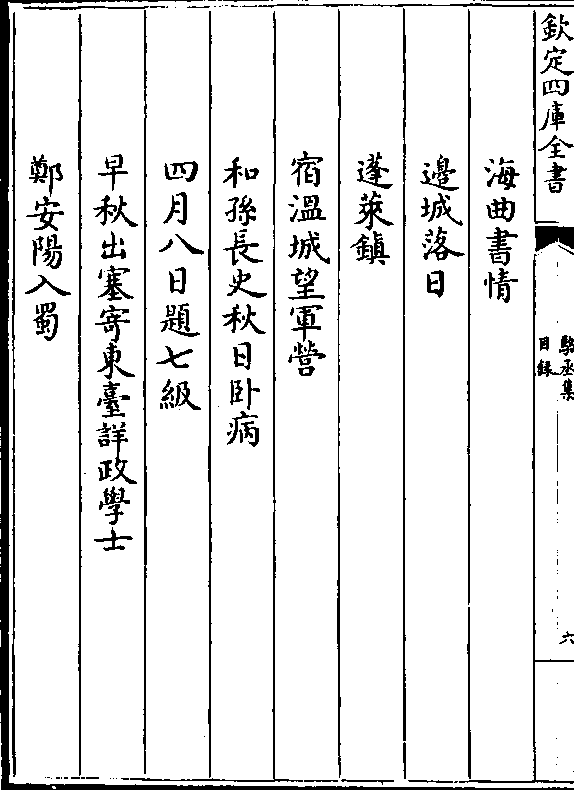 欽定四庫全書
駱丞集
目錄
六
海曲書情
邊城落日
蓬萊鎮
宿溫城望軍營
和孫長史秋日卧病
四月八日題七級
早秋出塞寄東臺詳政學士
鄭安陽入蜀